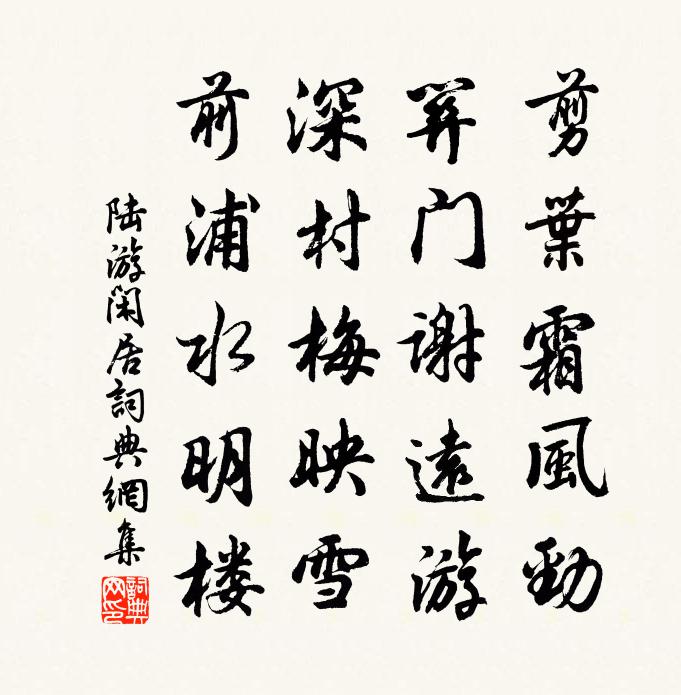 剪葉霜風勁
门謝遠游
深村梅映雪
前浦水明楼
陆游閑居詞典網集
詞典网印